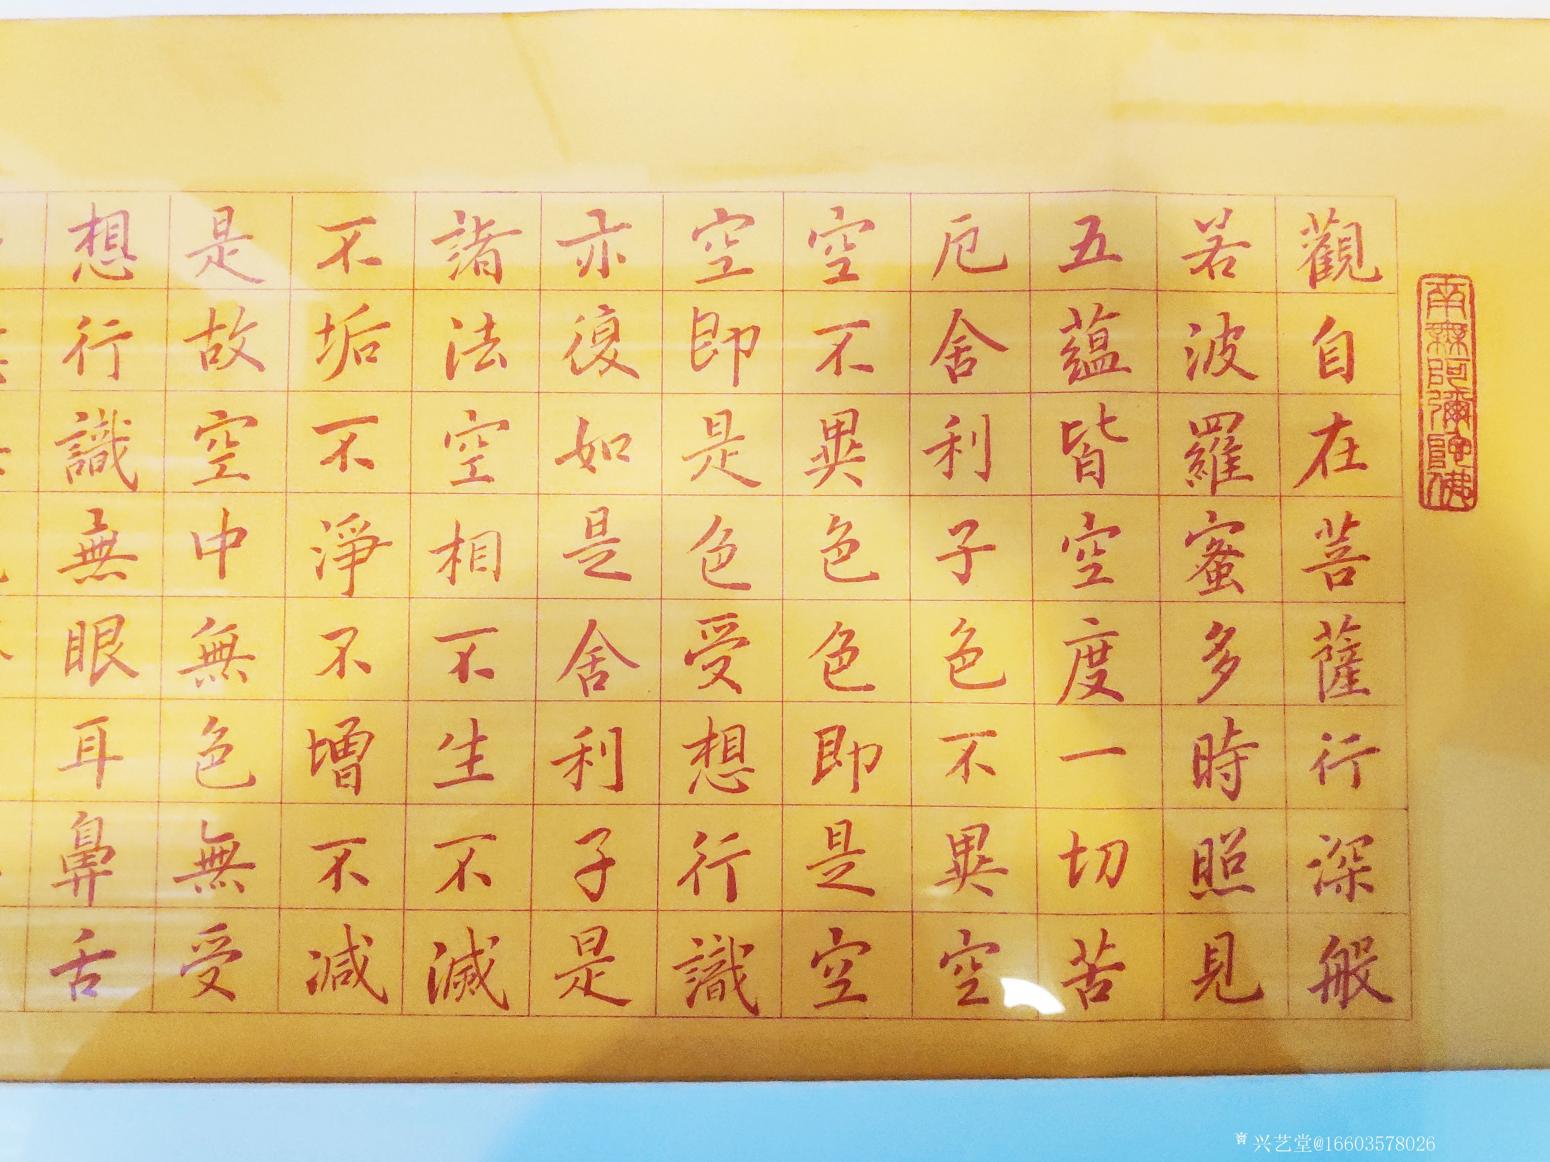 南無阿彌陀佛
觀自在菩薩行深般
若波羅蜜多時照見
五蘊皆空度一切苦
厄舍利子色不異空
空不異色色即是空
空即是色受想行識
亦復如是舍利子是
諸法空相不生不滅
不垢不淨不增不減
是故空中無色無受
想行識無眼耳鼻舌
兴艺堂@16603578026